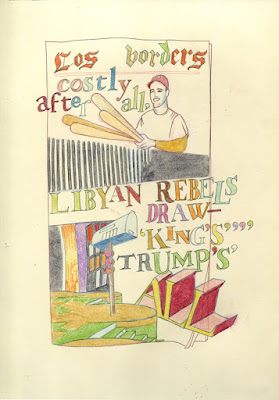 Los borders
costly
after all,
LIBYAN REBELS
DRAW—
'KING'S''''
TRUMP'S'